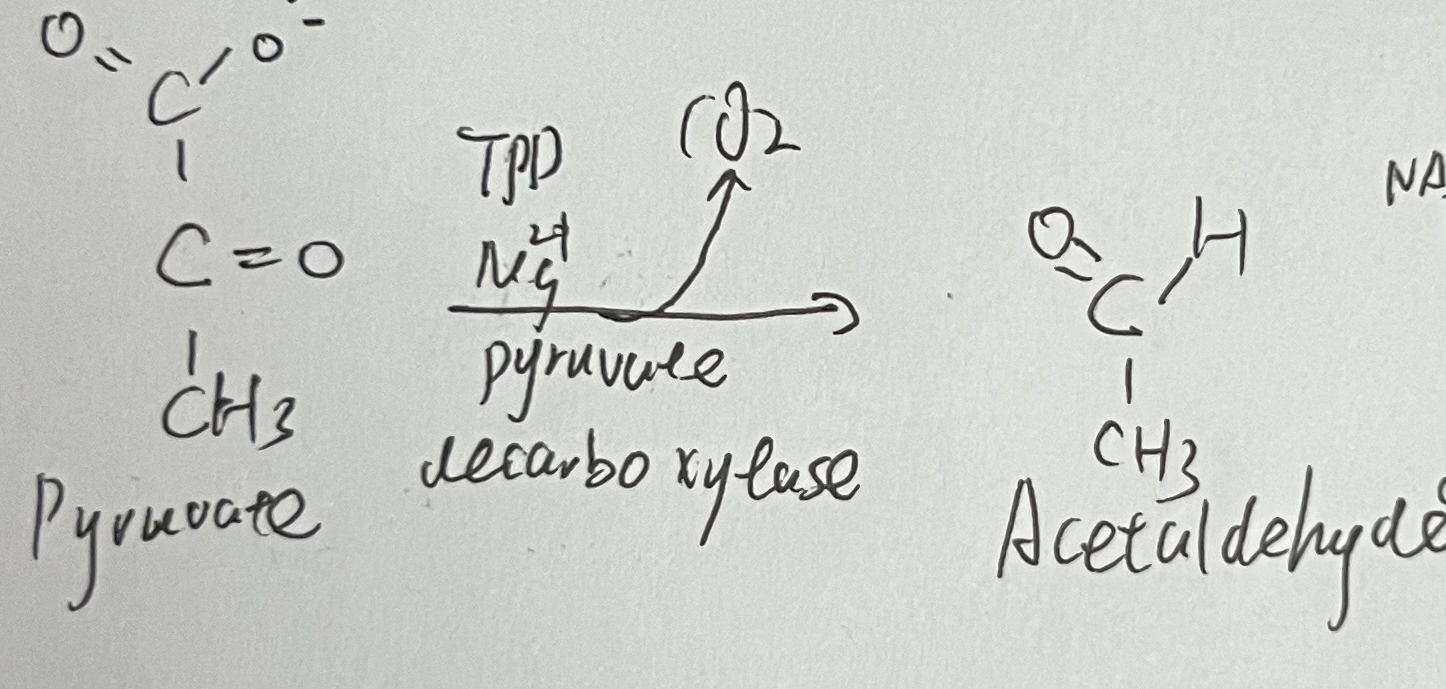 O=C-O⁻
C=O
CH3
Pyruvate
TPP
Mg2+
CO2
pyruvate
decarboxylase
O=C-H
CH3
Acetaldehyde
NA